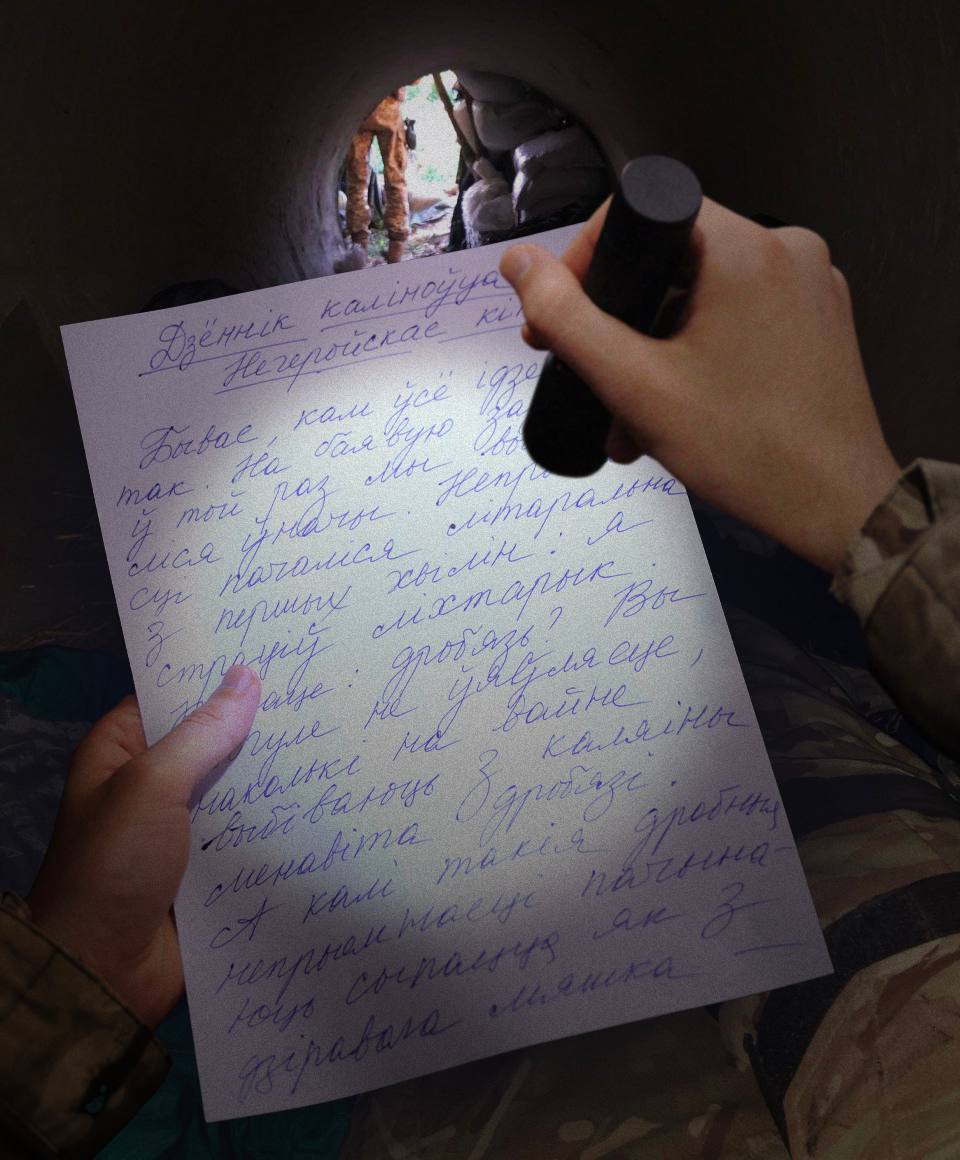 Дзённік каліноўца
Негеройскае кін
Бывае, калі ўсё ідзе
так. На баявую за
ў той раз мы вы
ліся ўначы. Непры
сці пачаліся літаральна
з першых хвілін: я
страціў ліхтарык.
дробязь? Вы
не ўяўляеце,
наколькі на вайне
выбіваюць з каляіны
менавіта дробязі.
А калі такія дробныя
непрыемнасці пачына-
юць сыпацца як з
дзіравага мяшка —